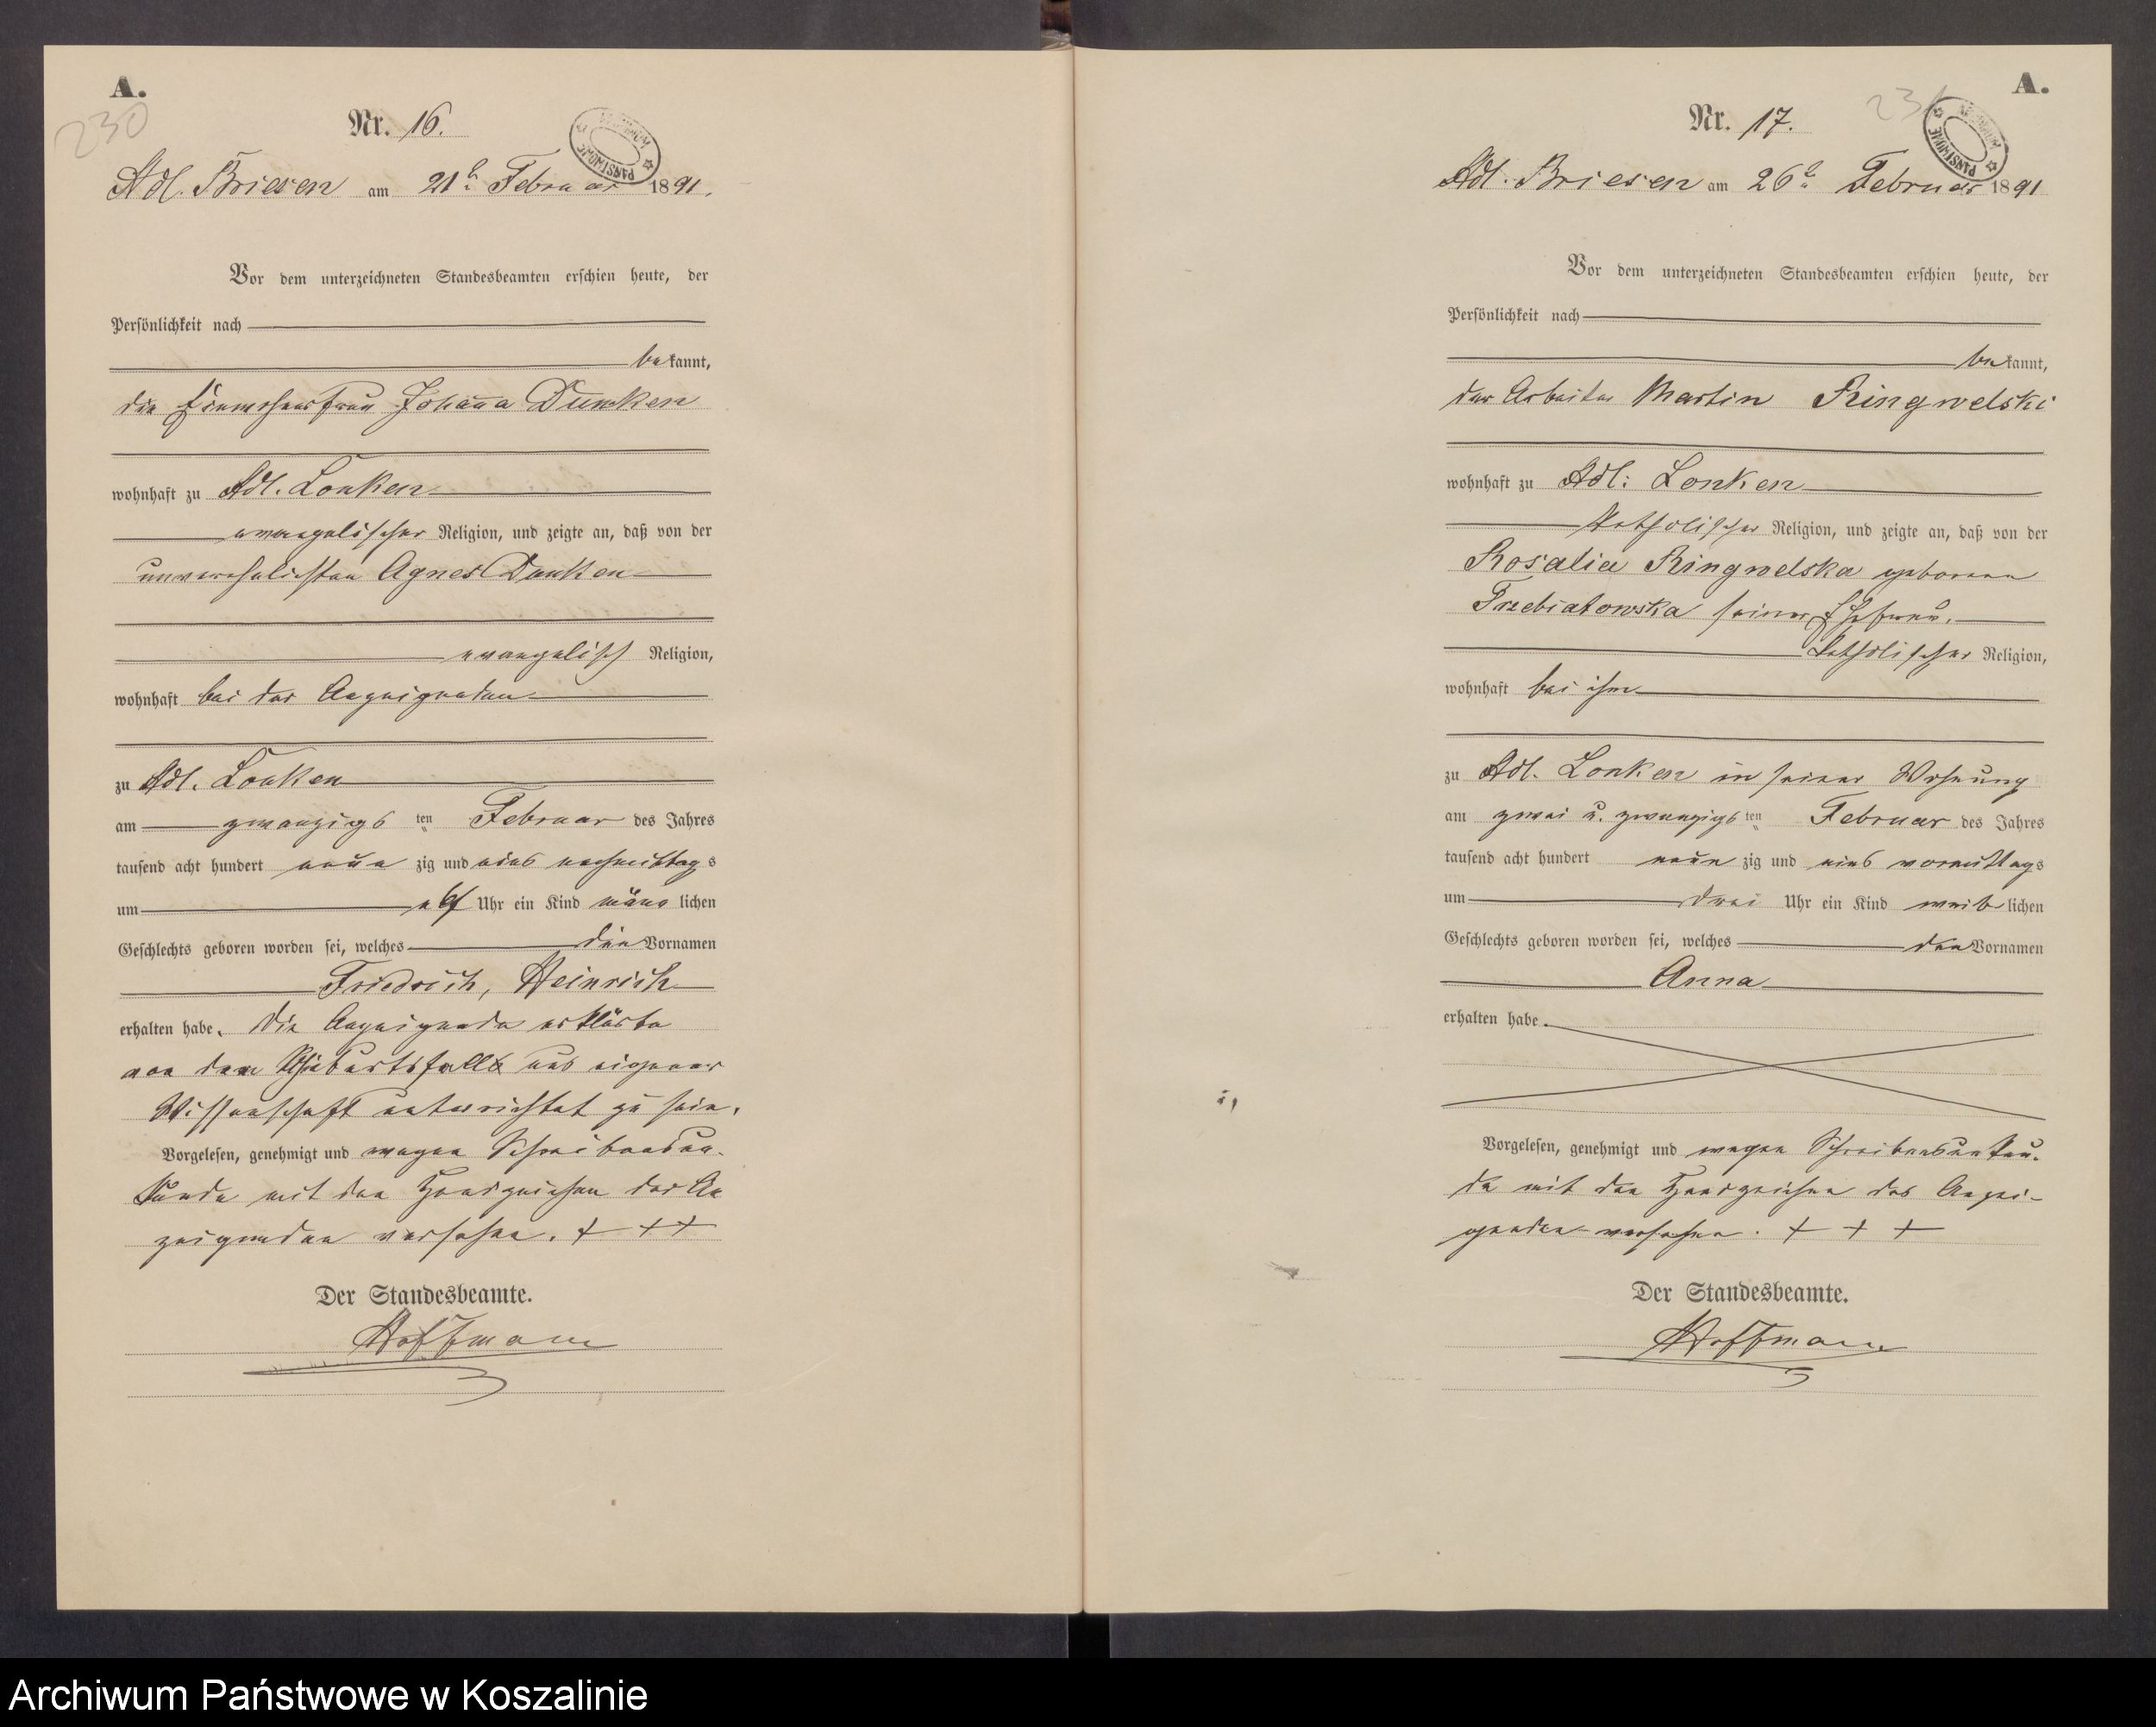 A.
230
Nr. 16.
PAŃSTWOWE
Adl. Briesen am 21t Februar 1891.
Vor dem unterzeichneten Standesbeamten erschien heute, der
Persönlichkeit nach
bekannt,
die Einwohnerfrau Johanna Dunken
wohnhaft zu Adl. Lonken
evangelischer Religion, und zeigte an, daß von der
unverehelichten Agnes Dunken
evangelisch Religion,
wohnhaft bei der Anzeigenden
zu Adl. Lonken
am zwanzigs ten Februar des Jahres
tausend acht hundert neun zig und eins nachmittags
um elf Uhr ein Kind männlichen
Geschlechts geboren worden sei, welches die Vornamen
Friedrich, Heinrich
erhalten habe. Die Anzeigende erklärte
von dem Geburtsfalle aus eigener
Wissenschaft unterrichtet zu sein.
Vorgelesen, genehmigt und wegen Schreibensun-
kunde mit den Handzeichen der An
zeigenden versehen. + + +
Der Standesbeamte.
Hoffmann
A.
231
Nr. 17.
PAŃSTWOWE
Adl. Briesen am 26t Februar 1891
Vor dem unterzeichneten Standesbeamten erschien heute, der
Persönlichkeit nach
bekannt,
der Arbeiter Martin Ringwelski
wohnhaft zu Adl. Lonken
katholischer Religion, und zeigte an, daß von der
Rosalia Ringwelska geborene
Trzebiatowska seiner Ehefrau.
katholischer Religion,
wohnhaft bei ihm
zu Adl. Lonken in seiner Wohnung
am zwei u. zwanzigs ten Februar des Jahres
tausend acht hundert neun zig und eins vormittags
um drei Uhr ein Kind weiblichen
Geschlechts geboren worden sei, welches den Vornamen
Anna
erhalten habe.
Vorgelesen, genehmigt und wegen Schreibensunkun-
de mit den Handzeichen des Anzei-
genden versehen. + + +
Der Standesbeamte.
Hoffmann
Archiwum Państwowe w Koszalinie